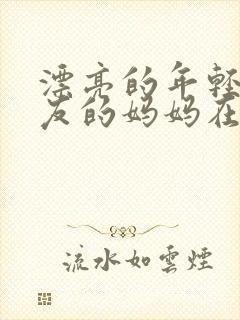 漂亮的年轻
友的妈妈在
流水如雲煙